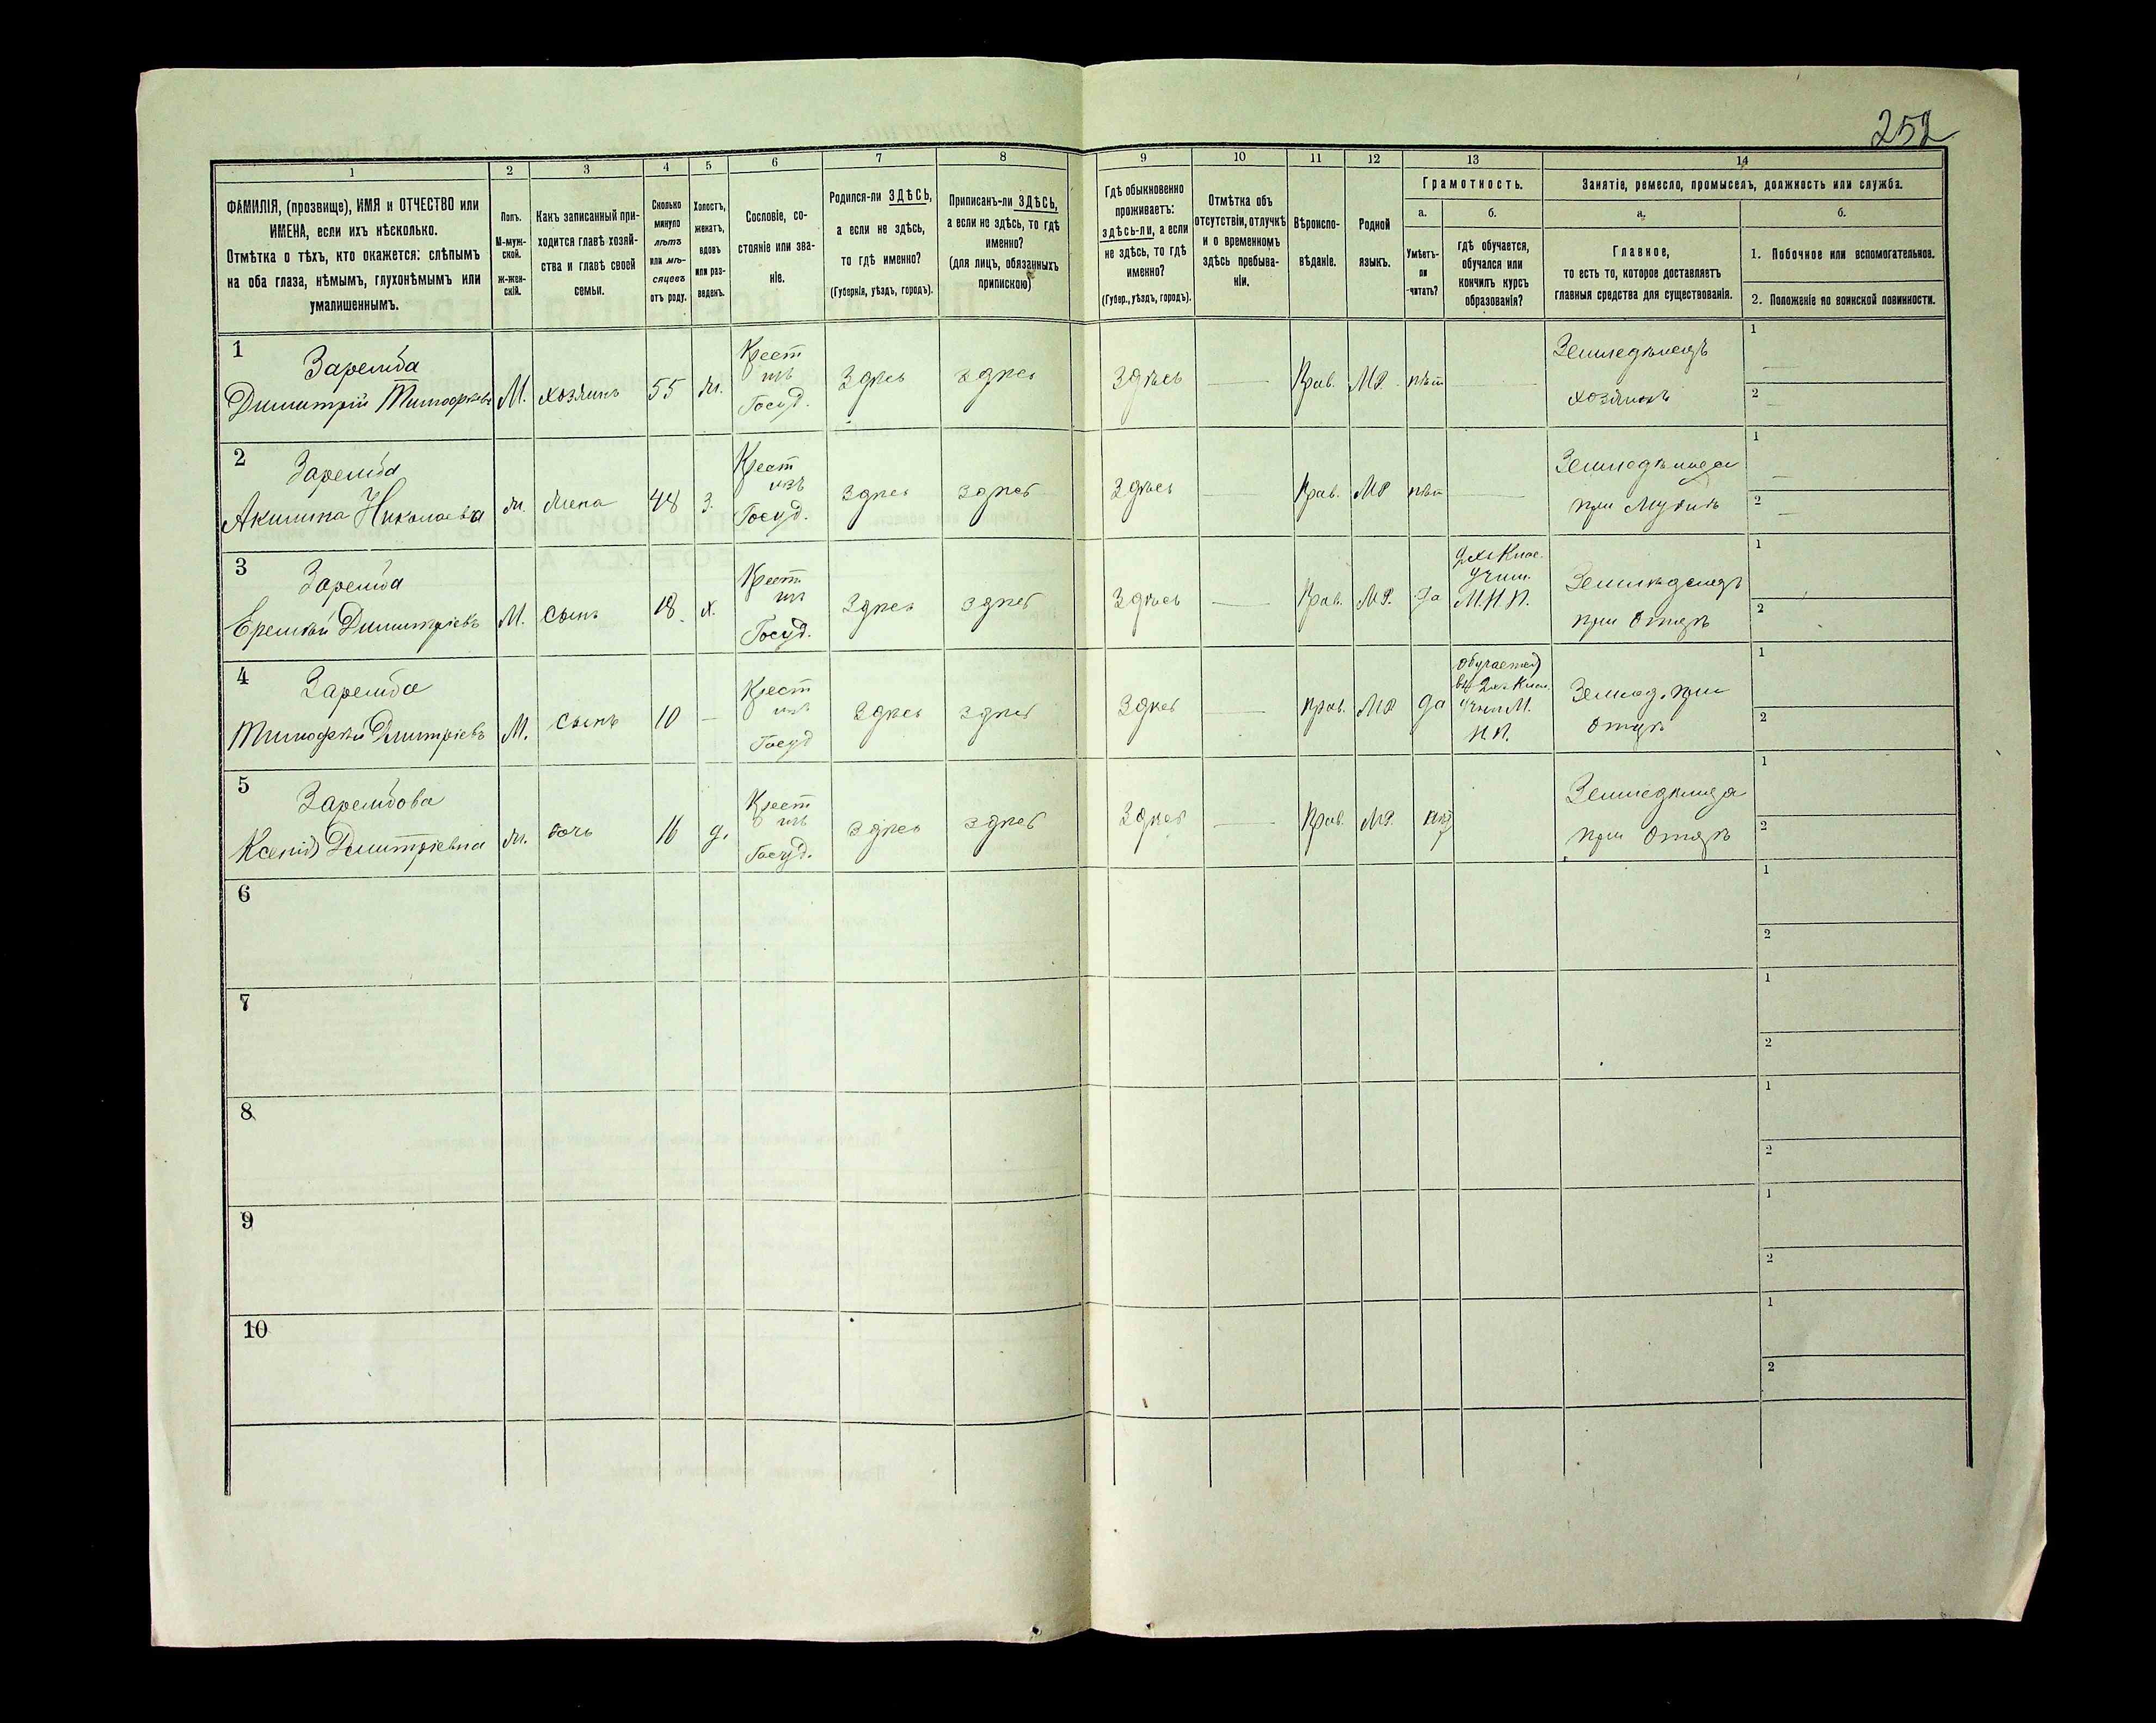 252
1
2
3
4
5
6
7
8
9
10
11
12
13
14
ФАМИЛІЯ, (прозвище), ИМЯ и ОТЧЕСТВО или
ИМЕНА, если ихъ нѣсколько.
Отмѣтка о тѣхъ, кто окажется: слѣпымъ
на оба глаза, нѣмымъ, глухонѣмымъ или
умалишеннымъ.
Полъ.
М-муж-
ской.
Ж-жен-
скій.
Какъ записанный при-
ходится главѣ хозяй-
ства и главѣ своей
семьи.
Сколько
минуло
лѣтъ
или мѣ-
сяцевъ
отъ роду.
Холостъ,
женатъ,
вдовъ
или раз-
веденъ.
Сословіе, со-
стояніе или зва-
ніе.
Родился-ли ЗДѢСЬ,
а если не здѣсь,
то гдѣ именно?
(Губернія, уѣздъ, городъ).
Приписанъ-ли ЗДѢСЬ,
а если не здѣсь, то гдѣ
именно?
(для лицъ, обязанныхъ
припискою)
Гдѣ обыкновенно
проживаетъ:
здѣсь-ли, а если
не здѣсь, то гдѣ
именно?
(Губер., уѣздъ, городъ).
Отмѣтка объ
отсутствіи, отлучкѣ
и о временномъ
здѣсь пребыва-
ніи.
Вѣроиспо-
вѣданіе.
Родной
языкъ.
Грамотность.
а.
Умѣетъ-
ли
читать?
б.
гдѣ обучается,
обучался или
кончилъ курсъ
образованія?
Занятіе, ремесло, промыселъ, должность или служба.
а.
Главное,
то есть то, которое доставляетъ
главныя средства для существованія.
б.
1. Побочное или вспомогательное.
2. Положеніе по воинской повинности.
1
Заремба
Димитрій Тимофѣевъ
М.
хозяинъ
55
ж.
Крест
изъ
Госуд.
Здѣсь
здѣсь
Здѣсь
Прав.
МР.
нѣт
Земледѣлецъ
хозяинъ
1
2
2
Заремба
Акилина Николаева
ж.
жена
48
з.
Крест
изъ
Госуд.
Здѣсь
Здѣсь
Здѣсь
Прав.
МР
нѣт
Земледѣлица
при Мужѣ
1
2
3
Заремба
Еремѣй Димитріевъ
М.
сынъ
18
х.
Крест.
изъ
Госуд.
Здѣсь
Здѣсь
Здѣсь
Прав.
МР.
да
2хъ Клас.
Учил.
М.Н.П.
Земледѣлецъ
при Отцѣ
1
2
4
Заремба
Тимофѣй Дмитріевъ
М.
сынъ
10
Крест
изъ
Госуд
Здѣсь
Здѣсь
Здѣсь
прав.
МР
да
обучается
въ 2хъ Клас.
Учил М.
Н.П.
Землед. при
Отцѣ
1
2
5
Зарембова
Ксенія Дмитріевна
ж.
дочь
16
д.
Крест
изъ
Госуд.
Здѣсь
Здѣсь
Здѣсь
Прав.
МР.
Земледѣлица
при Отцѣ
1
2
6
1
2
7
1
2
8
1
2
9
1
2
10
1
2